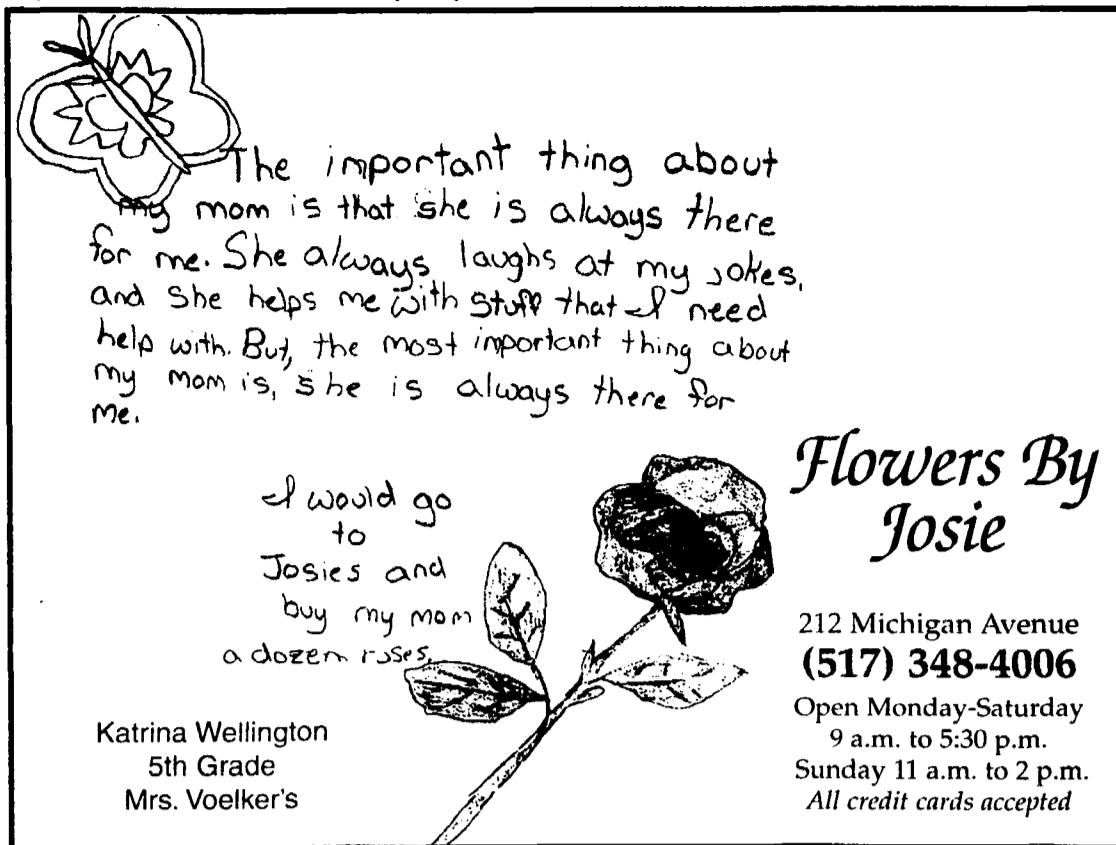 The important thing about
my mom is that she is always there
for me. She always laughs at my jokes,
and she helps me with stuff that I need
help with. But, the most important thing about
my mom is, she is always there for
me.
I would go
to
Josies and
buy my mom
a dozen roses.
Katrina Wellington
5th Grade
Mrs. Voelker's
Flowers By
Josie
212 Michigan Avenue
(517) 348-4006
Open Monday-Saturday
9 a.m. to 5:30 p.m.
Sunday 11 a.m. to 2 p.m.
All credit cards accepted